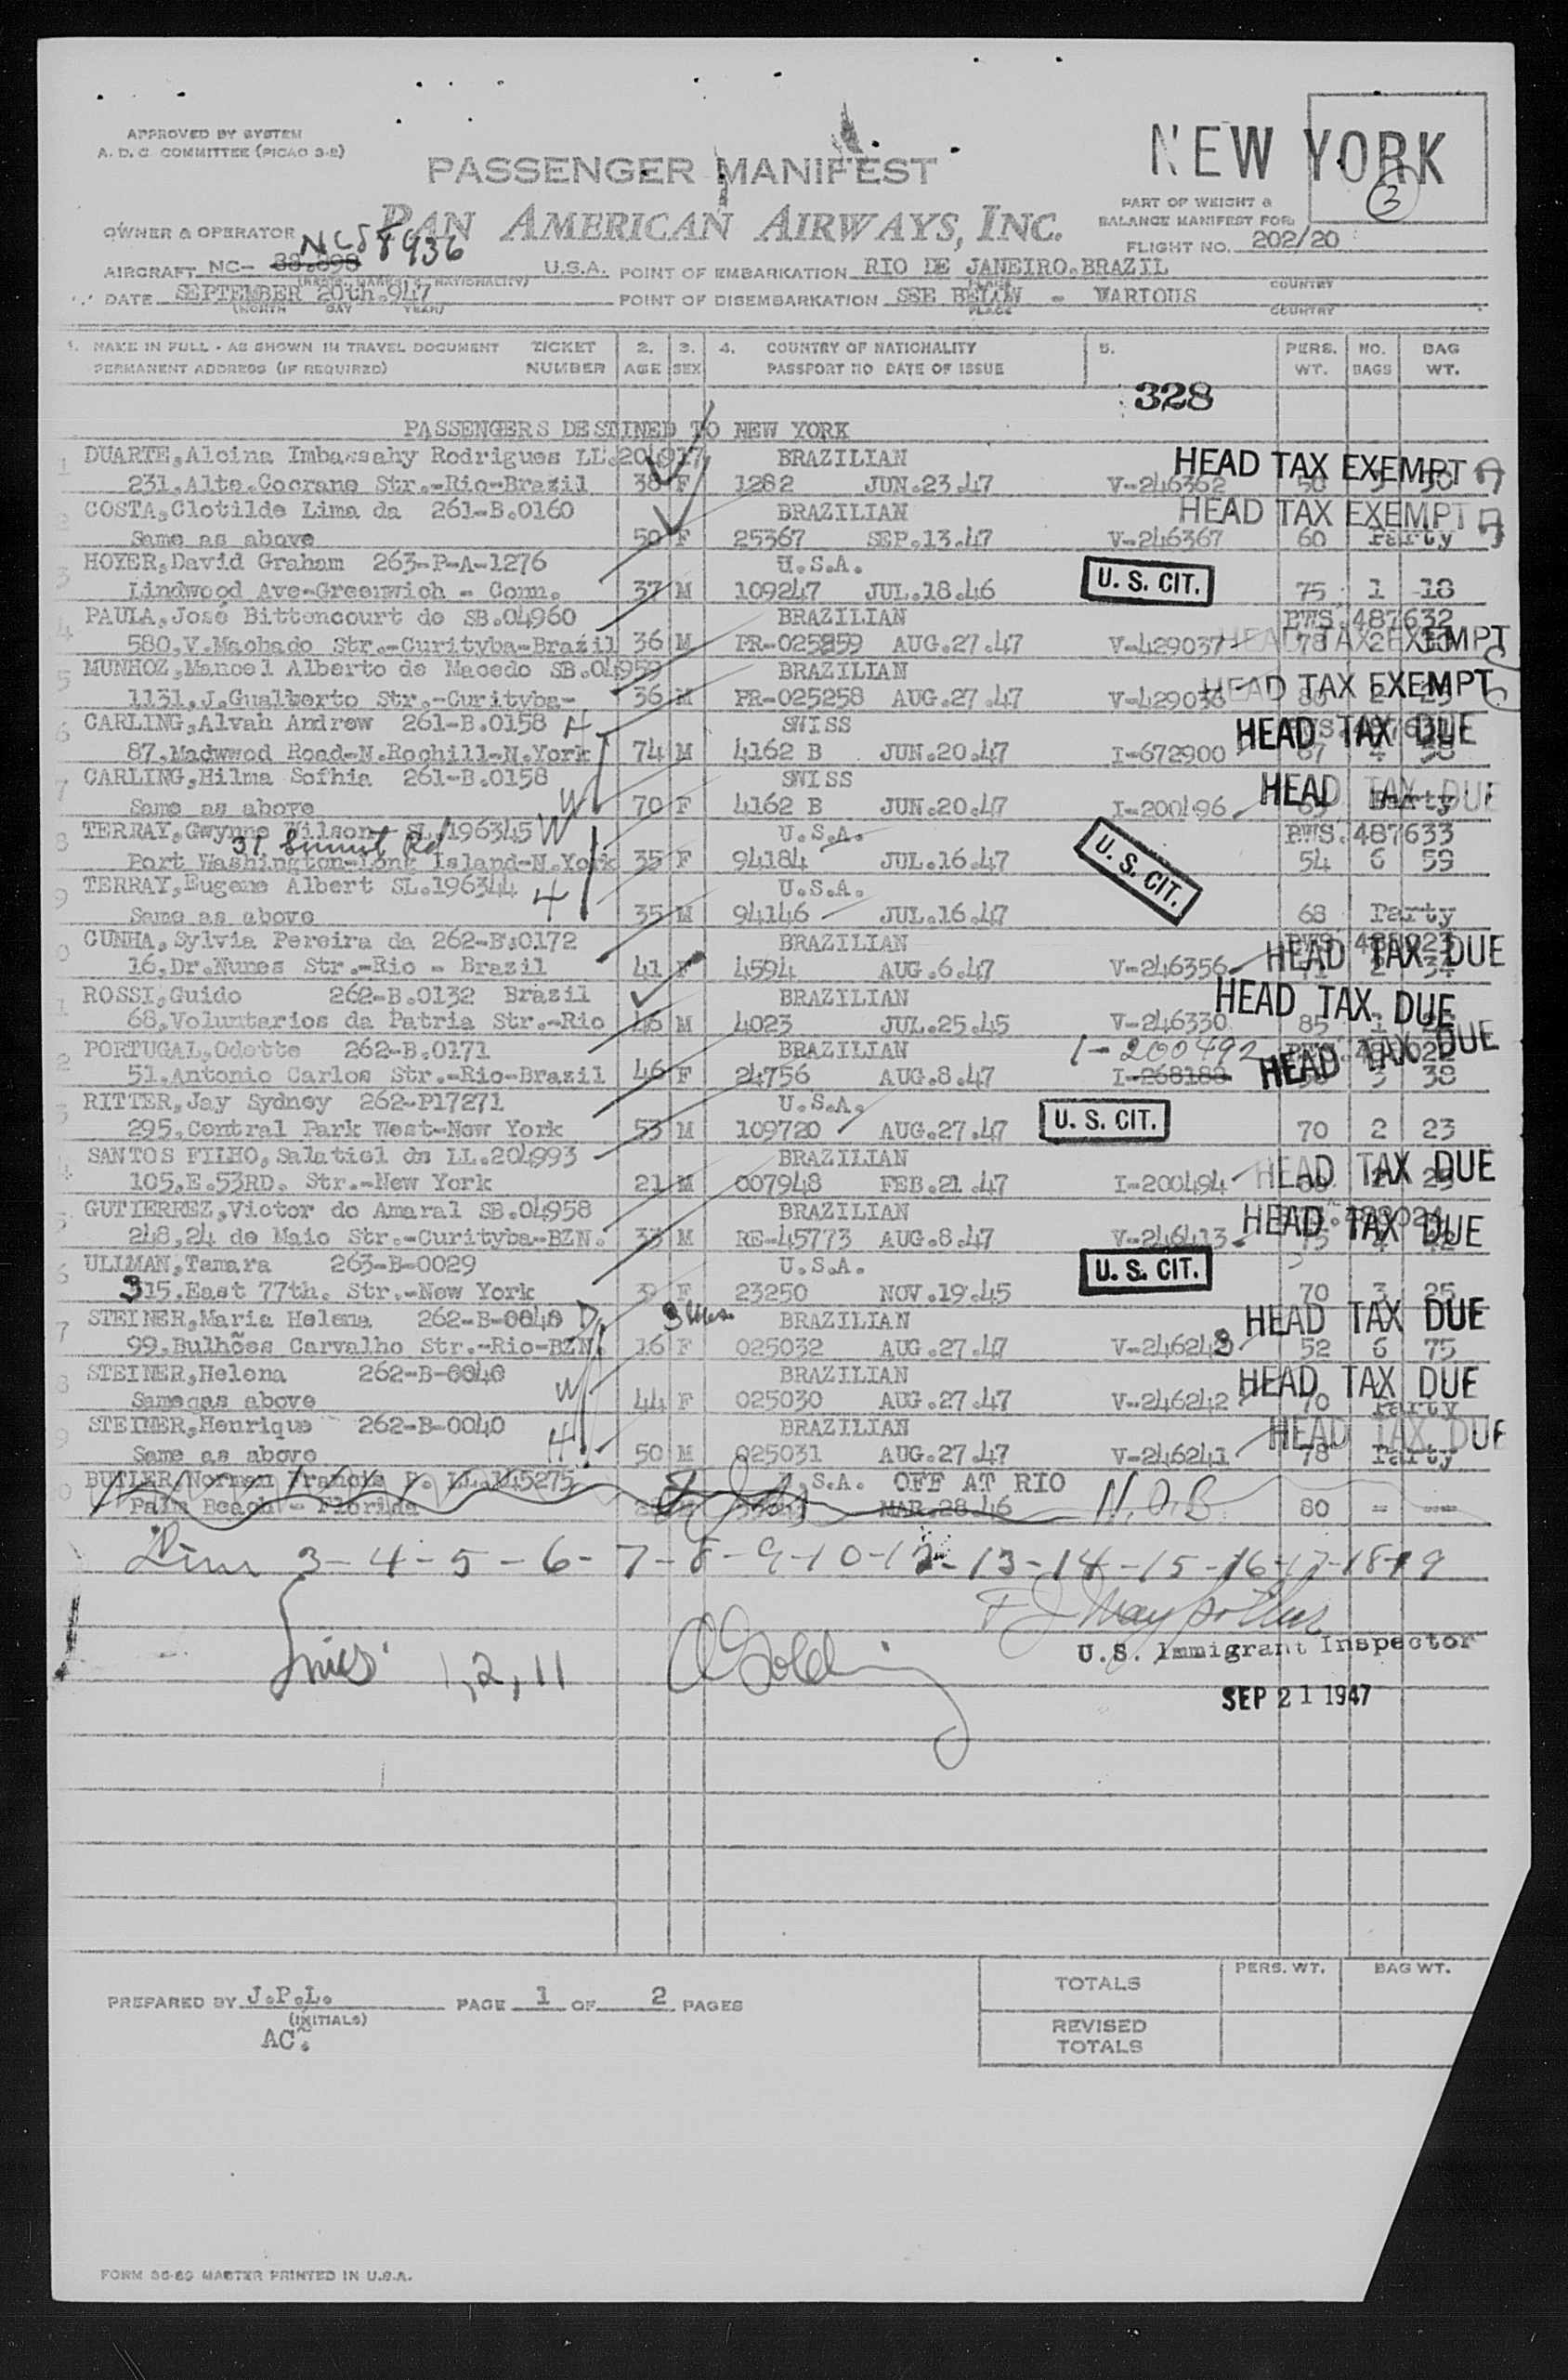 APPROVED BY SYSTEM
A. D. C. COMMITTEE (PICAO 3-2)
PASSENGER MANIFEST
NEW YORK
3
PART OF WEIGHT &
BALANCE MANIFEST FOR
OWNER & OPERATOR PAN AMERICAN AIRWAYS, INC.
FLIGHT NO. 202/20
NC58936
AIRCRAFT NC- 88.898 U.S.A. POINT OF EMBARKATION RIO DE JANEIRO.BRAZIL
PLACE COUNTRY
DATE SEPTEMBER 20th.947 POINT OF DISEMBARKATION SSE BELOW - VARIOUS
(MONTH DAY YEAR) PLACE COUNTRY
1. NAME IN FULL - AS SHOWN IN TRAVEL DOCUMENT TICKET 2. 3. 4. COUNTRY OF NATIONALITY 5. PERS. NO. BAG
PERMANENT ADDRESS (IF REQUIRED) NUMBER AGE SEX PASSPORT NO DATE OF ISSUE WT. BAGS WT.
328
PASSENGERS DESTINED TO NEW YORK
1 DUARTE,Alcina Imbassahy Rodrigues LL.204917 BRAZILIAN HEAD TAX EXEMPT
231.Alte.Cocrane Str.-Rio-Brazil 38 F 1282 JUN.23.47 V-246362
2 COSTA,Clotilde Lima da 261-B.0160 BRAZILIAN HEAD TAX EXEMPT
Same as above 50 F 25367 SEP.13.47 V-246367 60 Party
3 HOYER,David Graham 263-P-A-1276 U.S.A. U. S. CIT.
Lindwood Ave-Greenwich - Conn. 37 M 109247 JUL.18.46 75 1 18
4 PAULA,José Bittencourt de SB.04960 BRAZILIAN PWS.487632
580.V.Machado Str.-Curityba-Brazil 36 M PR-025259 AUG.27.47 V-429037 78 2 HEAD TAX EXEMPT
5 MUNHOZ,Manoel Alberto de Macedo SB.04959 BRAZILIAN
1131.J.Gualberto Str.-Curityba- 36 M PR-025258 AUG.27.47 V-429036 HEAD TAX EXEMPT
6 CARLING,Alvah Andrew 261-B.0158 H SWISS HEAD TAX DUE
87.Madwwod Road-N.Rochill-N.York 74 M 4162 B JUN.20.47 I-672900 67 4
7 CARLING,Hilma Sofhia 261-B.0158 SWISS HEAD TAX DUE
Same as above W 70 F 4162 B JUN.20.47 I-200496 Party
8 TERRAY,Gwynne Wilson SL.196345 W U.S.A. U. S. CIT. PWS.487633
31 Summit Rd
Port Washington-Long Island-N.York 35 F 94184 JUL.16.47 54 6 59
9 TERRAY,Eugene Albert SL.196344 H U.S.A.
Same as above 35 M 94146 JUL.16.47 68 Party
0 CUNHA,Sylvia Pereira da 262-B.0172 BRAZILIAN HEAD TAX DUE
16.Dr.Nunes Str.-Rio - Brazil 41 F 4594 AUG.6.47 V-246356
1 ROSSI,Guido 262-B.0132 Brazil BRAZILIAN HEAD TAX DUE
68.Voluntarios da Patria Str.-Rio 46 M 4023 JUL.25.45 V-246330 85 1
2 PORTUGAL,Odette 262-B.0171 BRAZILIAN I-200492 HEAD TAX DUE
51.Antonio Carlos Str.-Rio-Brazil 46 F 24756 AUG.8.47 I-268188 3 38
3 RITTER,Jay Sydney 262-P17271 U.S.A. U. S. CIT.
295.Central Park West-New York 53 M 109720 AUG.27.47 70 2 23
4 SANTOS FILHO,Salatiel da LL.204993 BRAZILIAN HEAD TAX DUE
105.E.53RD. Str.-New York 21 M 007948 FEB.21.47 I-200494
5 GUTIERREZ,Victor do Amaral SB.04958 BRAZILIAN HEAD TAX DUE
248,24 de Maio Str.-Curityba-BZN. 33 M RE-45773 AUG.8.47 V-246413 75 4 42
6 ULIMAN,Tamara 263-B-0029 U.S.A. U. S. CIT.
315.East 77th. Str.-New York 39 F 23250 NOV.19.45 70 3 25
7 STEINER,Maria Helena 262-B-0040 D BRAZILIAN HEAD TAX DUE
99.Bulhões Carvalho Str.-Rio-BZN. 16 F 025032 AUG.27.47 V-246243 52 6 75
8 STEINER,Helena 262-B-0040 BRAZILIAN HEAD TAX DUE
Samegas above W 44 F 025030 AUG.27.47 V-246242 70 Party
9 STEINER,Henrique 262-B-0040 BRAZILIAN HEAD TAX DUE
Same as above H 50 M 025031 AUG.27.47 V-246241 78 Party
0 BUTLER,Norman Francis P. LL.145275 U.S.A. OFF AT RIO
Palm Beach - Florida MAR.28.46 N.O.B. 80 - --
Line 3-4-5-6-7-8-9-10-12-13-14-15-16-17-18-19
U.S. Immigrant Inspector
Lines 1,2,11 Golding
SEP 21 1947
PREPARED BY J.P.L. PAGE 1 OF 2 PAGES
(INITIALS)
AC.
PERS. WT. BAG WT.
TOTALS
REVISED
TOTALS
FORM 36-29 MASTER PRINTED IN U.S.A.